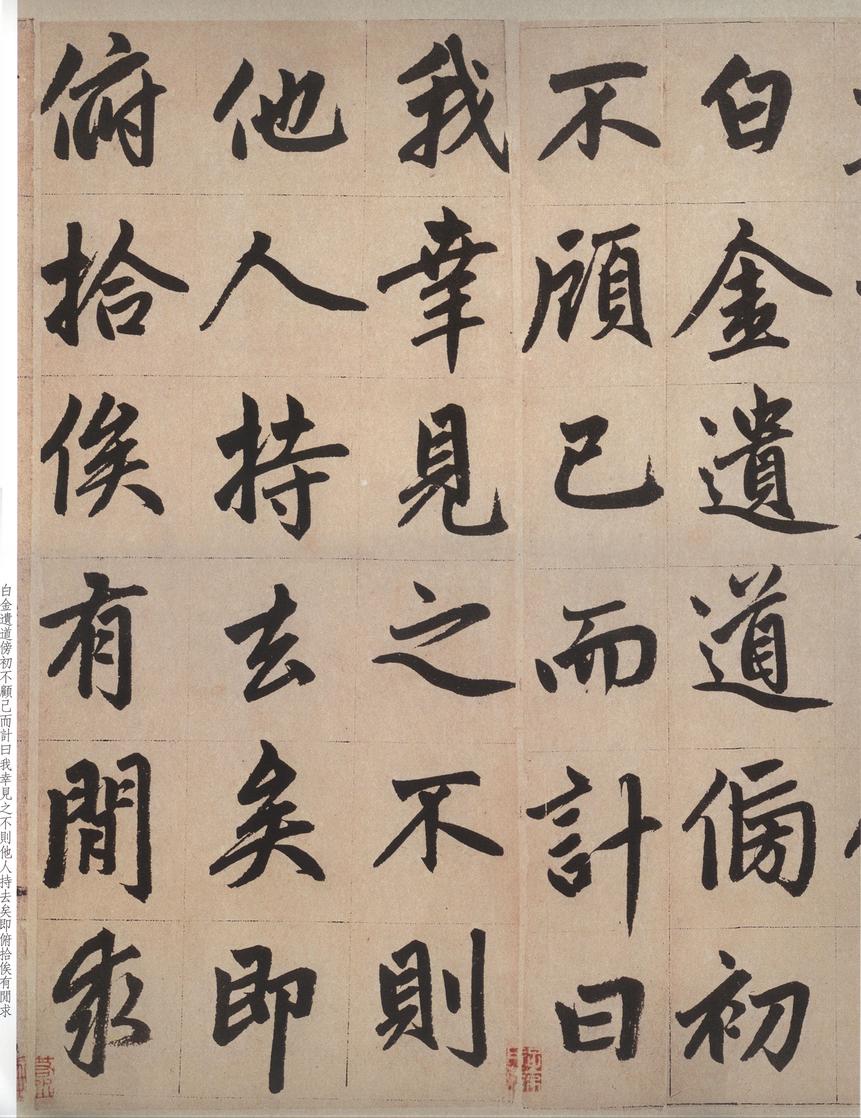 白金遺道傍初
不顧己而計曰
我幸見之不則
他人持去矣即
俯拾俟有間求
白金遺道傍初不顧己而計曰我幸見之不則他人持去矣即俯拾俟有間求